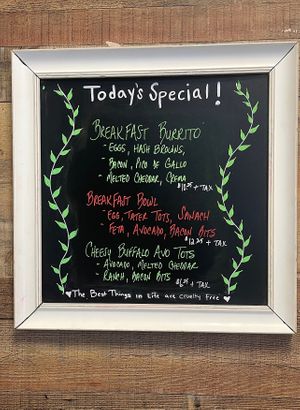 Today's Special!
BREAKFAST BURRITO
- EGGS, HASH BROWNS,
BACON, PICO DE GALLO
- MELTED CHEDDAR, CREMA
+ TAX
BREAKFAST BOWL
- EGG, TATER TOTS, SPINACH
- FETA, AVOCADO, BACON BITS
$12.25 + TAX
CHEESY BUFFALO AVO TOTS
- AVOCADO, MELTED CHEDDAR
- RANCH, BACON BITS
+ TAX
♥ The Best Things in Life are Cruelty Free ♥